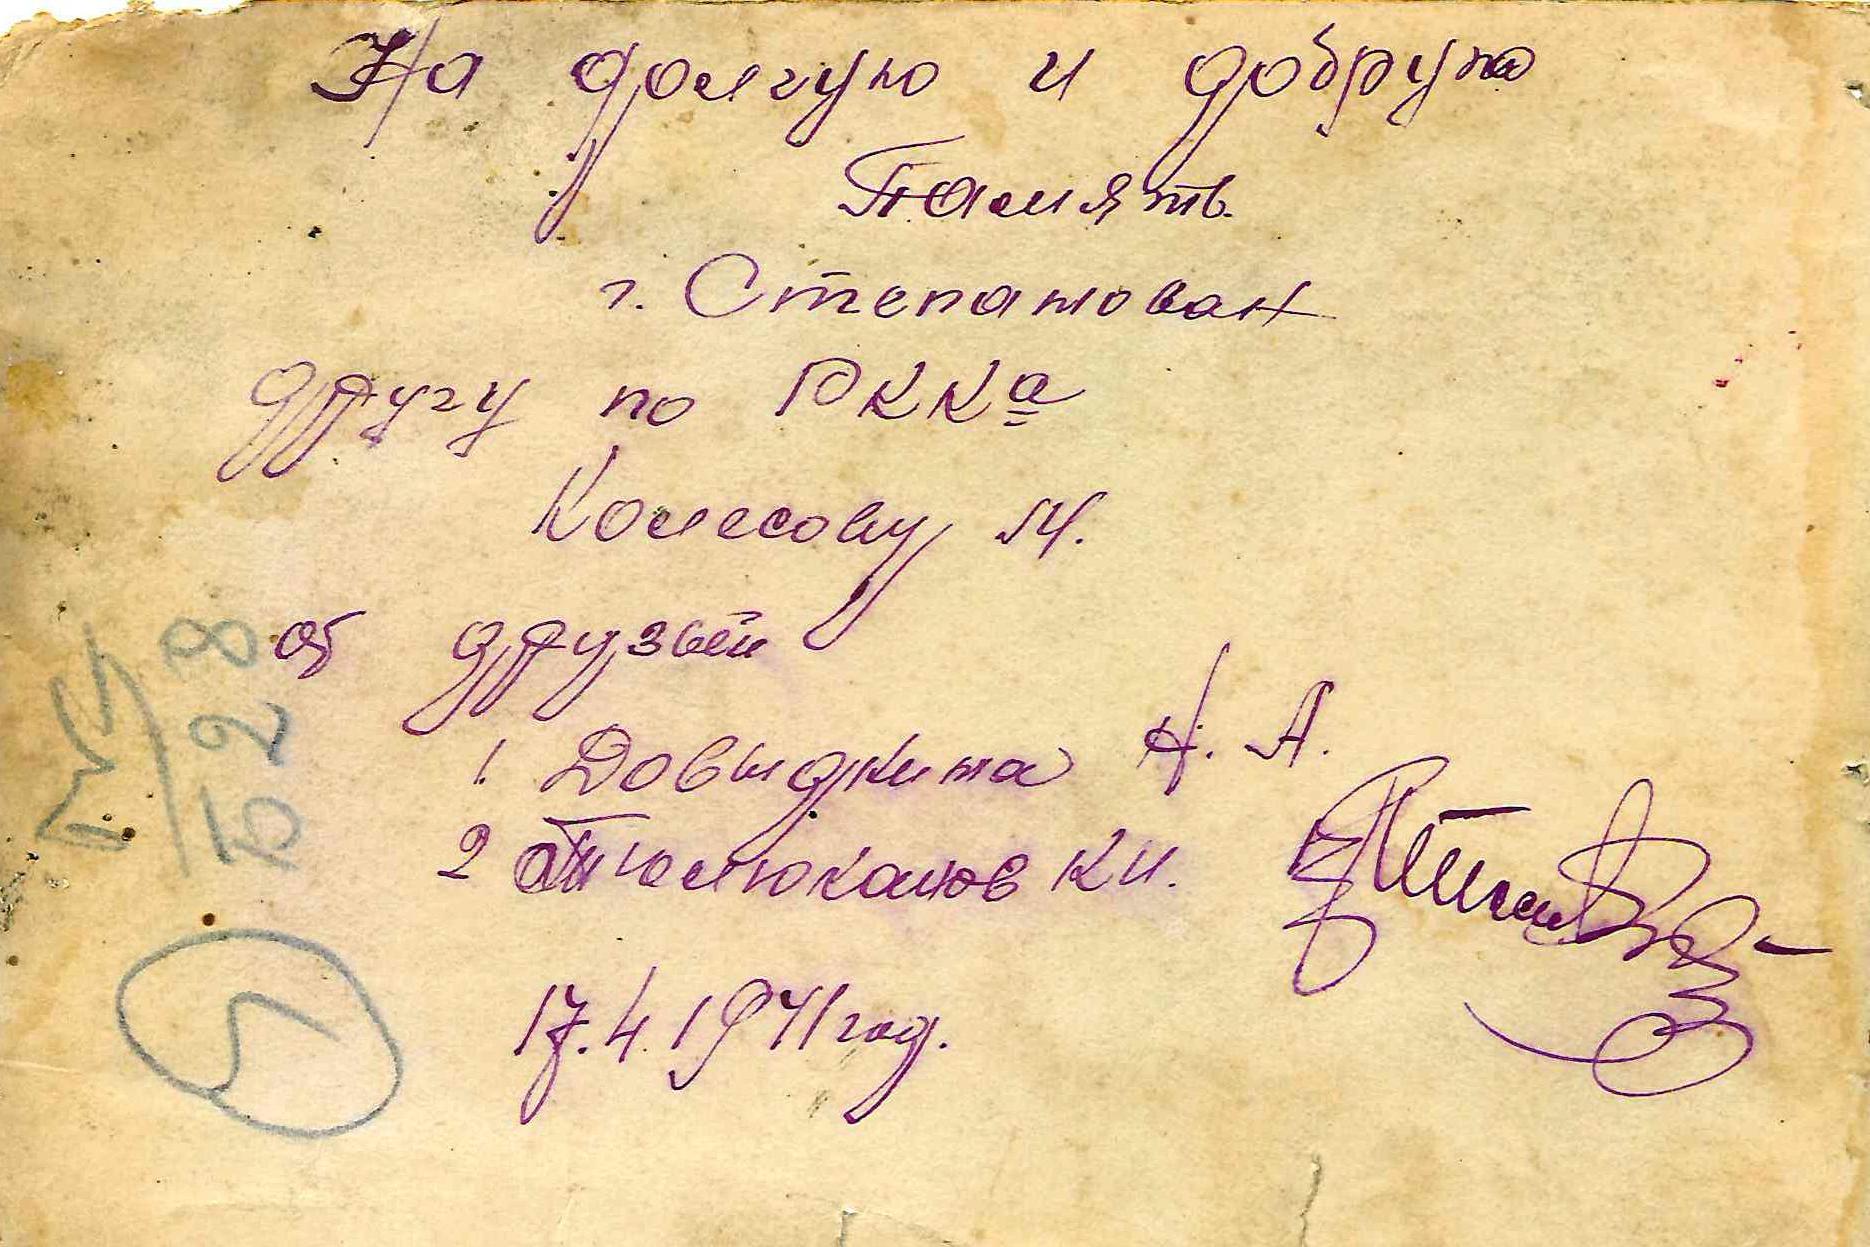 На долгую и добрую
Память
г. Степанован
другу по РККа
Колесову М.
от друзей
1. Довыдкина Н. А.
2 Тюлюканов К И.
17.4.1941 год.
528